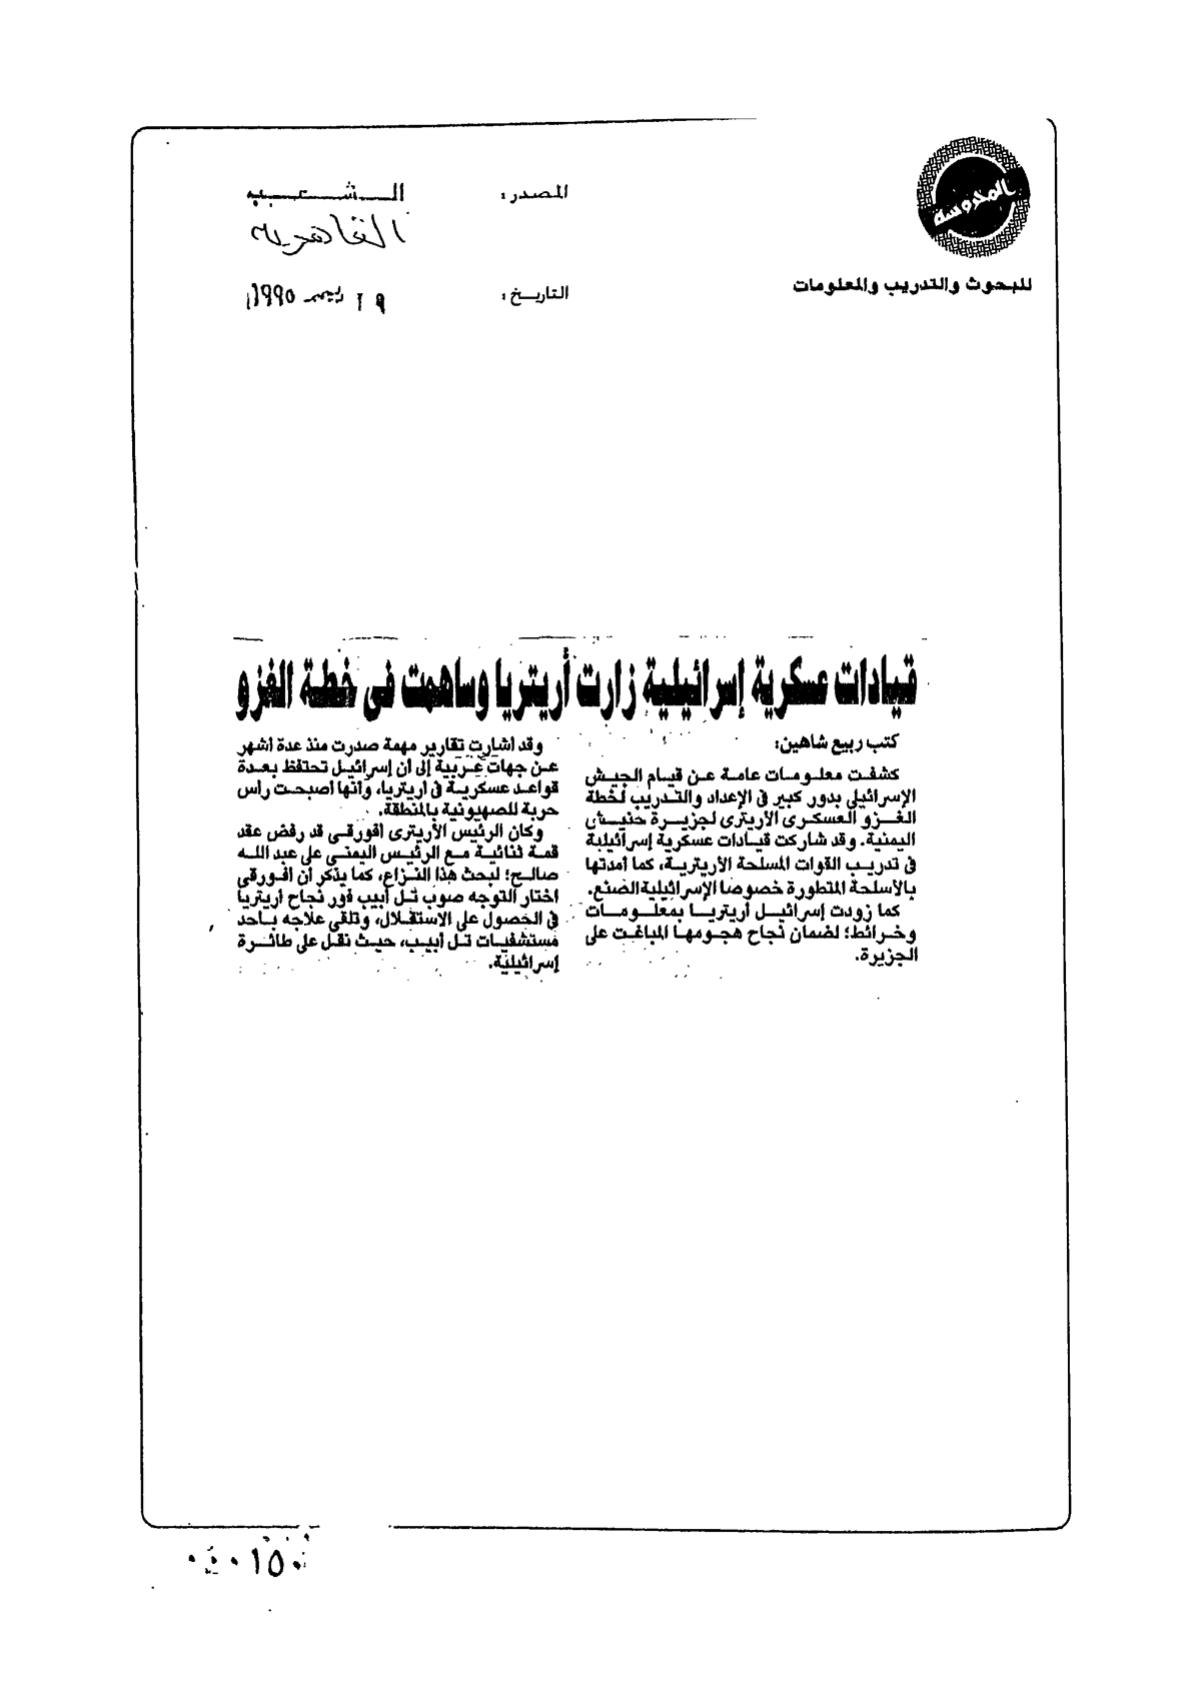 المحروسة
للبحوث والتدريب والمعلومات
المصدر: الشعب
القاهرية
التاريخ: ٢٩ ديسمبر ١٩٩٥
قيادات عسكرية إسرائيلية زارت أريتريا وساهمت فى خطة الغزو
كتب ربيع شاهين:
كشفت معلومات عامة عن قيام الجيش
الإسرائيلى بدور كبير فى الإعداد والتدريب لخطة
الغزو العسكرى الأريترى لجزيرة حنيش
اليمنية. وقد شاركت قيادات عسكرية إسرائيلية
فى تدريب القوات المسلحة الأريترية، كما أمدتها
بالأسلحة المتطورة خصوصا الإسرائيلية الصنع.
كما زودت إسرائيل أريتريا بمعلومات
وخرائط؛ لضمان نجاح هجومها المباغت على
الجزيرة.
وقد أشارت تقارير مهمة صدرت منذ عدة أشهر
عن جهات غربية إلى أن إسرائيل تحتفظ بعدة
قواعد عسكرية فى أريتريا، وأنها أصبحت رأس
حربة للصهيونية بالمنطقة.
وكان الرئيس الأريترى أفورقى قد رفض عقد
قمة ثنائية مع الرئيس اليمنى على عبد الله
صالح؛ لبحث هذا النزاع، كما يذكر أن أفورقى
اختار التوجه صوب تل أبيب فور نجاح أريتريا
فى الحصول على الاستقلال، وتلقى علاجه بأحد
مستشفيات تل أبيب، حيث نقل على طائرة
إسرائيلية.